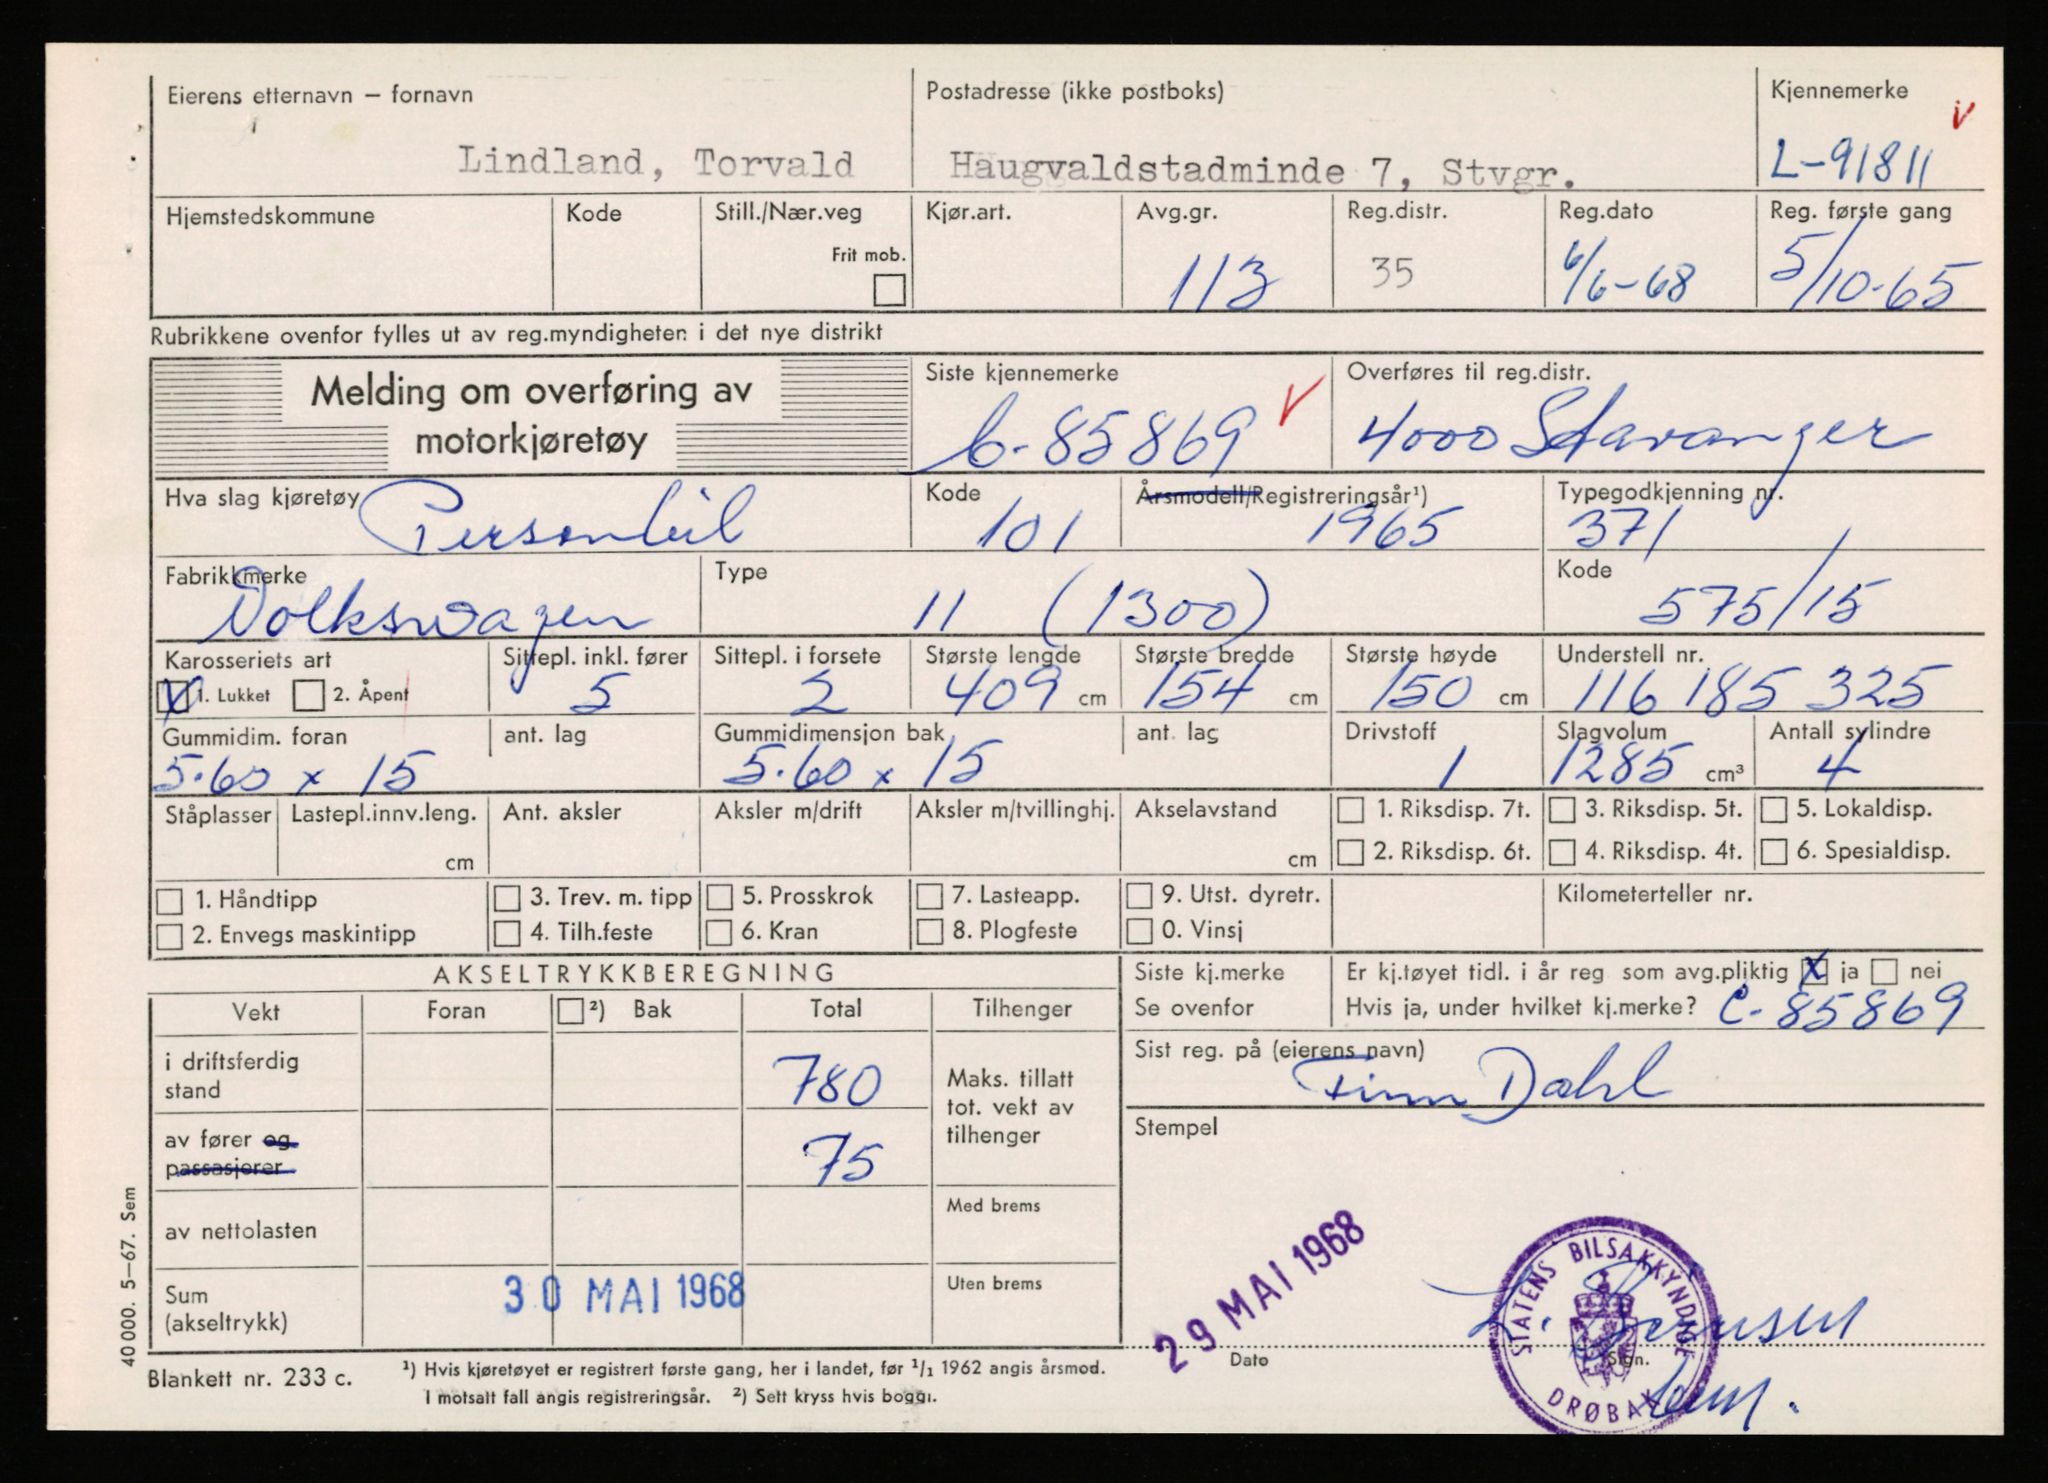 Eierens etternavn — fornavn
Postadresse (ikke postboks)
Kjennemerke
Lindland, Torvald
Haugvaldstadminde 7, Stvgr.
L-91811
Hjemstedskommune
Kode
Still./Nær.veg
Frit mob.
Kjør.art.
Avg.gr.
113
Reg.distr.
35
Reg.dato
6/6-68
Reg. første gang
5/10-65
Rubrikkene ovenfor fylles ut av reg.myndigheten i det nye distrikt
Melding om overføring av
motorkjøretøy
Siste kjennemerke
C-85869
Overføres til reg.distr.
4000 Stavanger
Hva slag kjøretøy
Personbil
Kode
101
Årsmodell/Registreringsår¹)
1965
Typegodkjenning nr.
371
Fabrikkmerke
Volkswagen
Type
11 (1300)
Kode
575/15
Karosseriets art
1. Lukket 2. Åpent
Sittepl. inkl. fører
5
Sittepl. i forsete
2
Største lengde
409 cm
Største bredde
154 cm
Største høyde
150 cm
Understell nr.
116 185 325
Gummidim. foran
5.60 x 15
ant. lag
Gummidimensjon bak
5.60 x 15
ant. lag
Drivstoff
1
Slagvolum
1285 cm³
Antall sylindre
4
Ståplasser
Lastepl.innv.leng.
cm
Ant. aksler
Aksler m/drift
Aksler m/tvillinghj.
Akselavstand
cm
1. Riksdisp. 7t.
3. Riksdisp. 5t.
5. Lokaldisp.
2. Riksdisp. 6t.
4. Riksdisp. 4t.
6. Spesialdisp.
1. Håndtipp
3. Trev. m. tipp
5. Prosskrok
7. Lasteapp.
9. Utst. dyretr.
Kilometerteller nr.
2. Envegs maskintipp
4. Tilh.feste
6. Kran
8. Plogfeste
0. Vinsj
AKSELTRYKKBEREGNING
Siste kj.merke
Se ovenfor
Er kj.tøyet tidl. i år reg som avg.pliktig x ja nei
Hvis ja, under hvilket kj.merke? C-85869
Vekt
Foran
²) Bak
Total
Tilhenger
Sist reg. på (eierens navn)
Finn Dahl
i driftsferdig
stand
780
Maks. tillatt
tot. vekt av
tilhenger
Stempel
av fører og
passasjerer
75
av nettolasten
Med brems
Sum
(akseltrykk)
30 MAI 1968
Uten brems
29 MAI 1968
Dato
STATENS BILSAKKYNDIGE
DRØBAK
Sign.
40 000. 5—67. Sem
Blankett nr. 233 c.
¹) Hvis kjøretøyet er registrert første gang, her i landet, før 1/1 1962 angis årsmod.
I motsatt fall angis registreringsår. ²) Sett kryss hvis boggi.